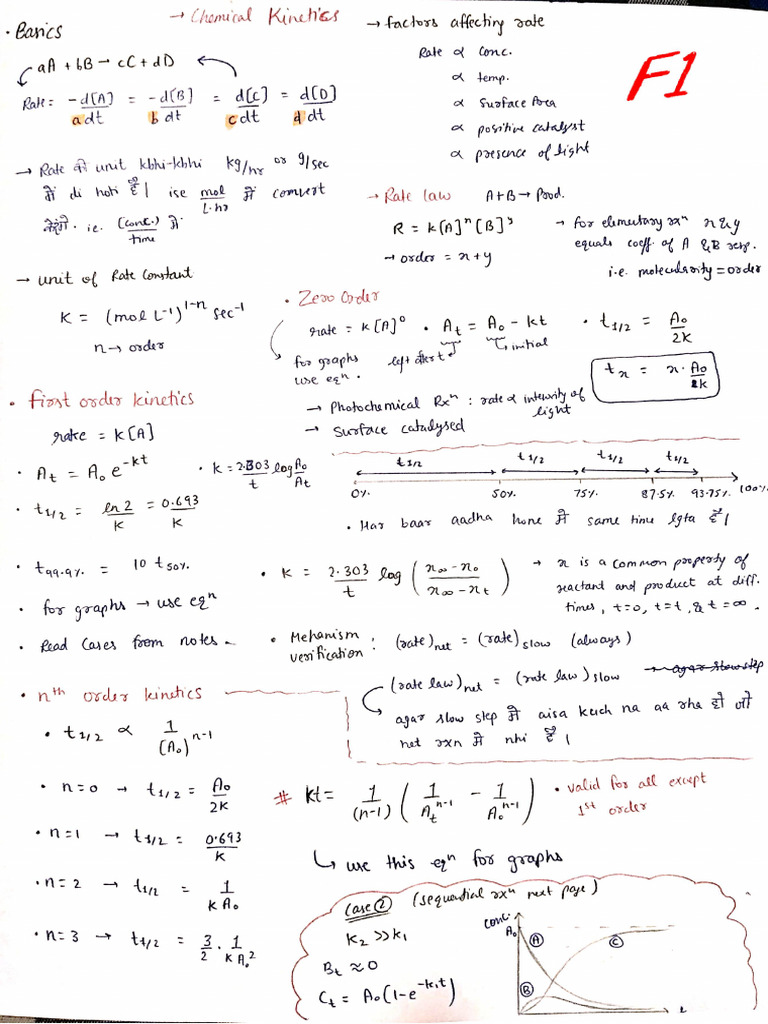 → Chemical Kinetics
F1
• Basics
aA + bB → cC + dD
Rate = -d[A]/a dt = -d[B]/b dt = d[C]/c dt = d[D]/d dt
→ Rate की unit kbhi-kbhi kg/hr or g/sec
में di hoti है। ise mol/L·hr में convert
करेंगे. i.e. (conc.)/time में
→ unit of Rate Constant
K = (mol L⁻¹)¹⁻ⁿ sec⁻¹
n → order
→ factors affecting rate
Rate ∝ conc.
∝ temp.
∝ Surface Area
∝ positive catalyst
∝ presence of light
→ Rate law A+B → Prod.
R = k[A]ˣ[B]ʸ
→ order = x + y
→ for elementary rxⁿ x & y
equals coeff. of A & B resp.
i.e. molecularity = order
• Zero Order
rate = k[A]⁰ • At = A₀ - kt • t1/2 = A₀/2k
left after t initial
for graphs
use eqⁿ.
tx = x·A₀/2k
→ Photochemical Rxⁿ : rate ∝ intensity of
light
→ Surface catalysed
• first order kinetics
rate = k[A]
• At = A₀e^-kt • k = 2.303/t log A₀/At
• t1/2 = ln 2/k = 0.693/k
t1/2 t1/2 t1/2 t1/2
0% 50% 75% 87.5% 93.75% 100%
• Har baar aadha hone में same time lgta है।
• t99.9% = 10 t50%
• for graphs → use eqⁿ
• Read Cases from notes.
• k = 2.303/t log (x∞ - x₀ / x∞ - xt)
→ x is a common property of
reactant and product at diff.
times, t=0, t=t, & t=∞.
• Mechanism
verification : (rate)net = (rate)slow (always)
(rate law)net = (rate law)slow → agar slow step
agar slow step में aisa kuch na aa rha हो जो
net rxn में nhi है।
• nth order kinetics
• t1/2 ∝ 1/(A₀)ⁿ⁻¹
• n=0 → t1/2 = A₀/2k
• n=1 → t1/2 = 0.693/k
• n=2 → t1/2 = 1/kA₀
• n=3 → t1/2 = 3/2 · 1/kA₀²
# Kt = 1/(n-1) (1/Atⁿ⁻¹ - 1/A₀ⁿ⁻¹) • valid for all except
1st order
↳ use this eqⁿ for graphs
Case ② (sequential rxⁿ next page)
K₂ >> k₁
Bt ≈ 0
Ct = A₀(1-e^-k₁t)
conc.
A₀
A
B
C
t